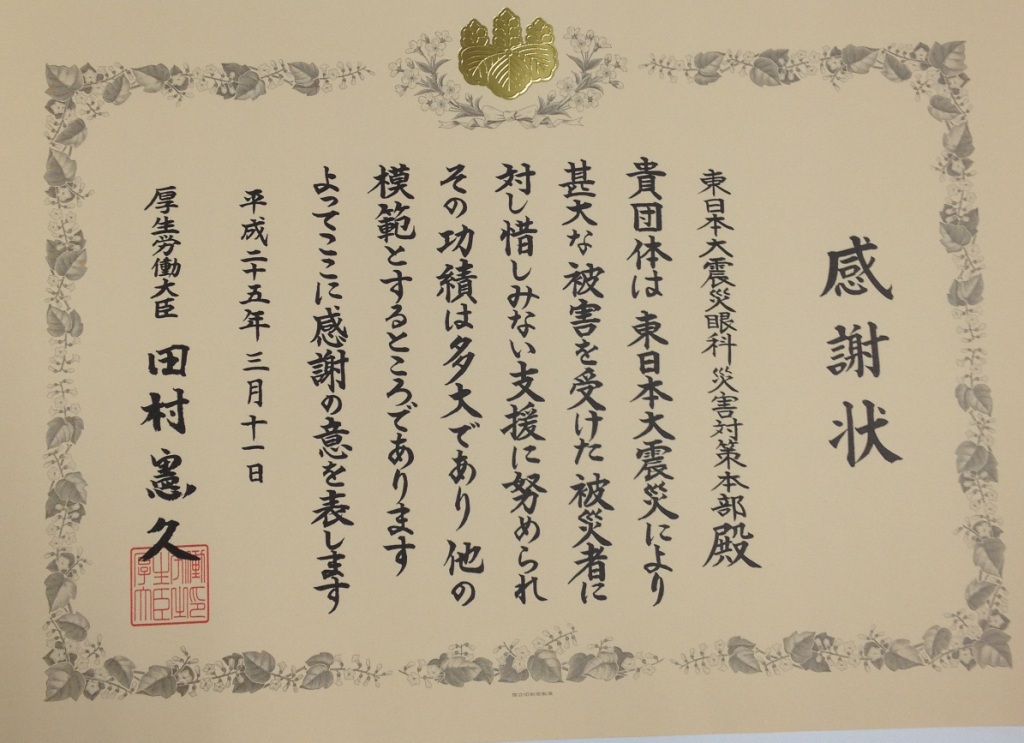 感謝状
東日本大震災眼科災害対策本部殿
貴団体は東日本大震災により
甚大な被害を受けた被災者に
対し惜しみない支援に努められ
その功績は多大であり他の
模範とするところであります
よってここに感謝の意を表します
平成二十五年三月十一日
厚生労働大臣 田村憲久